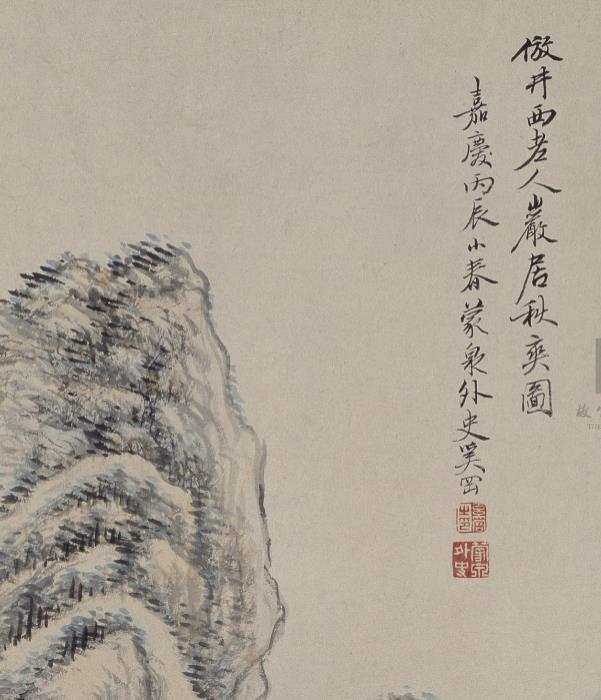 倣井西老人巖居秋爽圖
嘉慶丙辰小春蒙泉外史奚岡
蒙泉外史